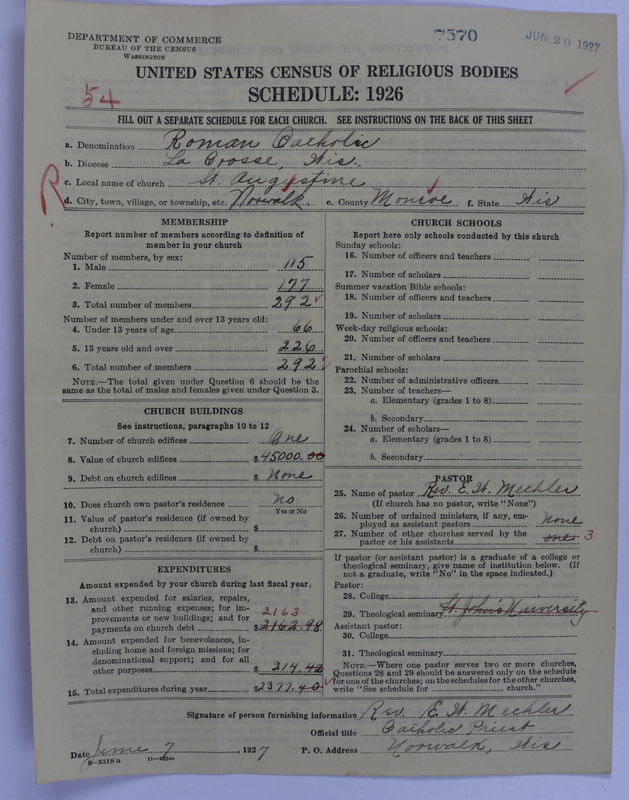 DEPARTMENT OF COMMERCE
BUREAU OF THE CENSUS
WASHINGTON
7570
JUN 20 1927
UNITED STATES CENSUS OF RELIGIOUS BODIES
SCHEDULE: 1926
54
FILL OUT A SEPARATE SCHEDULE FOR EACH CHURCH. SEE INSTRUCTIONS ON THE BACK OF THIS SHEET
a. Denomination Roman Catholic
b. Diocese La Crosse, Wis.
c. Local name of church St. Augustine
R
d. City, town, village, or township, etc. Norwalk e. County Monroe f. State Wis
MEMBERSHIP
Report number of members according to definition of
member in your church
Number of members, by sex:
1. Male 115
2. Female 177
3. Total number of members 292
Number of members under and over 13 years old:
4. Under 13 years of age 66
5. 13 years old and over 226
6. Total number of members 292
NOTE.—The total given under Question 6 should be the
same as the total of males and females given under Question 3.
CHURCH BUILDINGS
See instructions, paragraphs 10 to 12
7. Number of church edifices One
8. Value of church edifices $45000.00
9. Debt on church edifices $ None
10. Does church own pastor's residence No
Yes or No
11. Value of pastor's residence (if owned by
church) $
12. Debt on pastor's residence (if owned by
church) $
EXPENDITURES
Amount expended by your church during last fiscal year,
13. Amount expended for salaries, repairs,
and other running expenses; for im-
provements or new buildings; and for
payments on church debt 2163 $2162.98
14. Amount expended for benevolences, in-
cluding home and foreign missions; for
denominational support; and for all
other purposes $214.42
15. Total expenditures during year $2377.40
CHURCH SCHOOLS
Report here only schools conducted by this church
Sunday schools:
16. Number of officers and teachers
17. Number of scholars
Summer vacation Bible schools:
18. Number of officers and teachers
19. Number of scholars
Week-day religious schools:
20. Number of officers and teachers
21. Number of scholars
Parochial schools:
22. Number of administrative officers
23. Number of teachers—
a. Elementary (grades 1 to 8)
b. Secondary
24. Number of scholars—
a. Elementary (grades 1 to 8)
b. Secondary
PASTOR
25. Name of pastor Rev. E. W. Mechler
(If church has no pastor, write "None")
26. Number of ordained ministers, if any, em-
ployed as assistant pastors None
27. Number of other churches served by the
pastor or his assistants one 3
If pastor (or assistant pastor) is a graduate of a college or
theological seminary, give name of institution below. (If
not a graduate, write "No" in the space indicated.)
Pastor:
28. College
29. Theological seminary St. John's University
Assistant pastor:
30. College
31. Theological seminary
NOTE.—Where one pastor serves two or more churches,
Questions 28 and 29 should be answered only on the schedule
for one of the churches; on the schedules for the other churches,
write "See schedule for church."
Signature of person furnishing information Rev. E. W. Mechler
Official title Catholic Priest
Date June 7, 1927 P. O. Address Norwalk, Wis